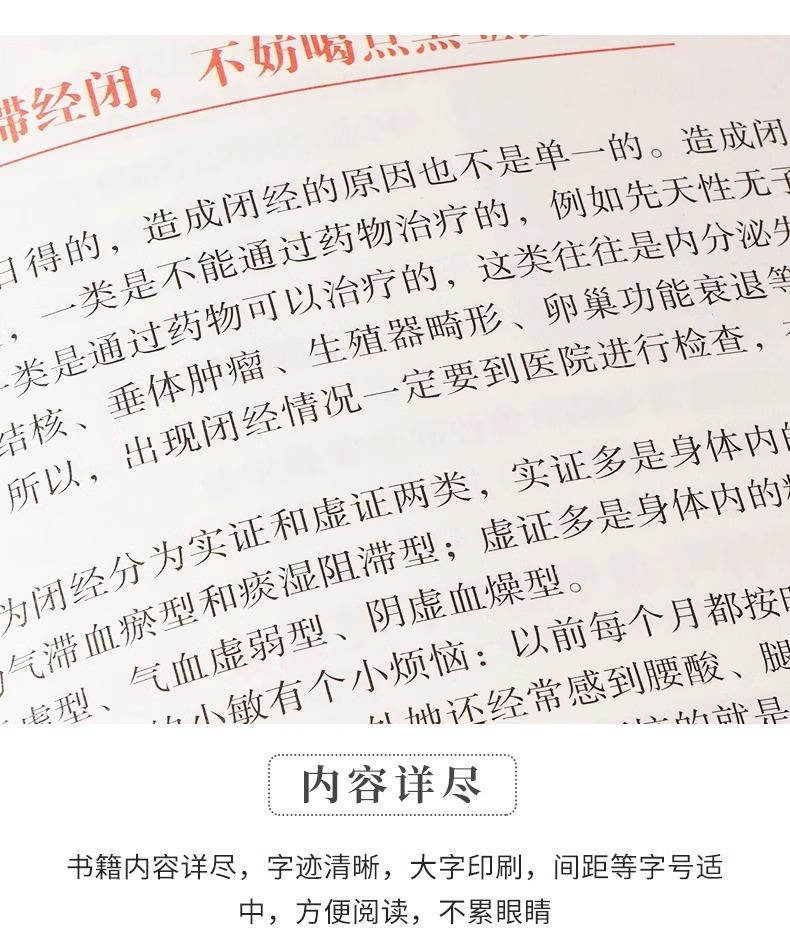 滞经闭，不妨喝点黑豆
日得的，造成闭经的原因也不是单一的。造成闭
，一类是不能通过药物治疗的，例如先天性无子
一类是通过药物可以治疗的，这类往往是内分泌失
结核、垂体肿瘤、生殖器畸形、卵巢功能衰退等
所以，出现闭经情况一定要到医院进行检查，
为闭经分为实证和虚证两类，实证多是身体内的
气滞血瘀型和痰湿阻滞型；虚证多是身体内的精
虚型、气血虚弱型、阴虚血燥型。
小敏有个小烦恼：以前每个月都按时
她还经常感到腰酸、腿
的就是
内容详尽
书籍内容详尽，字迹清晰，大字印刷，间距等字号适
中，方便阅读，不累眼睛